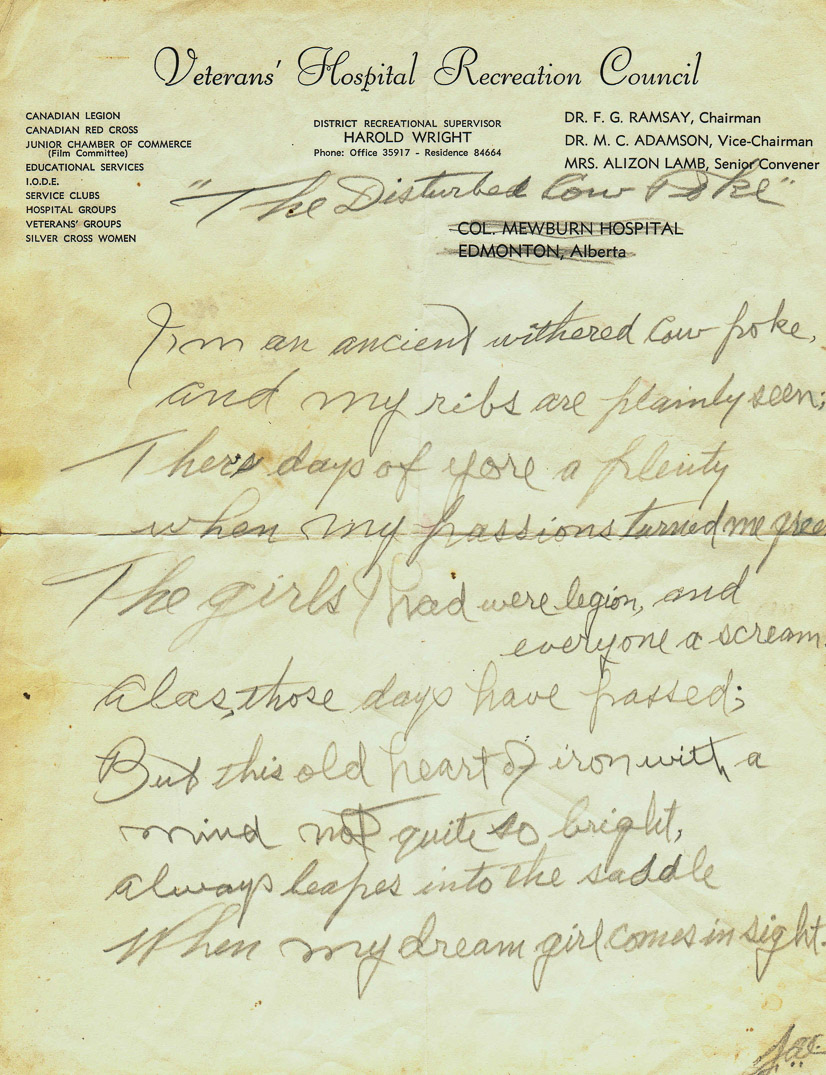 Veterans' Hospital Recreation Council
CANADIAN LEGION
CANADIAN RED CROSS
JUNIOR CHAMBER OF COMMERCE
(Film Committee)
EDUCATIONAL SERVICES
I.O.D.E.
SERVICE CLUBS
HOSPITAL GROUPS
VETERANS' GROUPS
SILVER CROSS WOMEN
DISTRICT RECREATIONAL SUPERVISOR
HAROLD WRIGHT
Phone: Office 35917 - Residence 84664
DR. F. G. RAMSAY, Chairman
DR. M. C. ADAMSON, Vice-Chairman
MRS. ALIZON LAMB, Senior Convener
"The Disturbed Cow Poke"
COL. MEWBURN HOSPITAL
EDMONTON, Alberta
I'm an ancient withered Cow poke,
and my ribs are plainly seen;
Theres days of yore a plenty
when my passions turned me gree
The girls I had were legion, and
everyone a scream.
Alas, those days have passed;
But this old heart of iron with a
mind not quite so bright,
always leapes into the saddle
When my dream girl comes in sight.